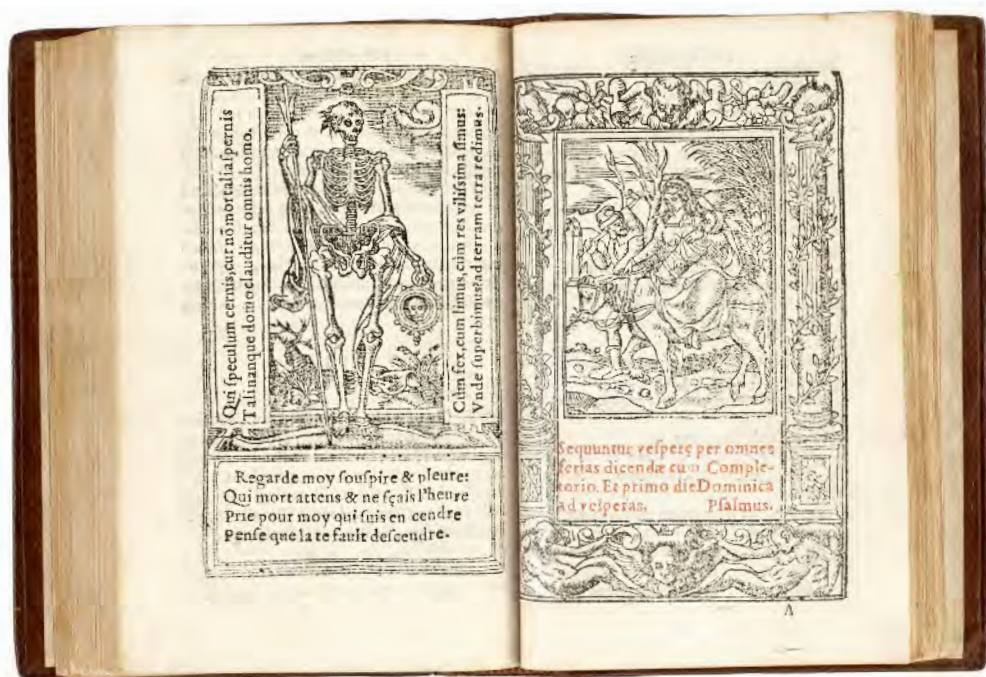 Qui ſpeculum cernis, cur nõ mortalia ſpernis
Tali nanque domo clauditur omnis homo.
Cùm fex, cum limus, cùm res viliſsima ſimus:
Vnde ſuperbimus? ad terram terra redimus.
Regarde moy ſouſpire & pleure:
Qui mort attens & ne ſçais l'heure
Prie pour moy qui ſuis en cendre
Penſe que la te fault deſcendre.
Sequuntur veſperę per omnes
ferias dicendæ cum Comple-
torio. Et primo die Dominica
ad veſperas. Pſalmus.
A